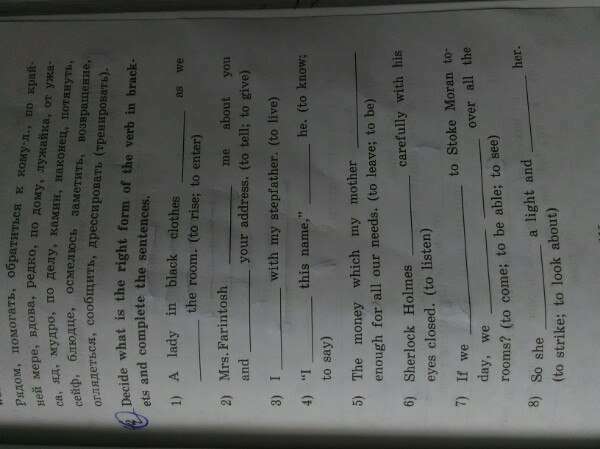 Рядом, помогать, обратиться к кому-л, по край-
ней мере, вдова, редко, по дому, лужайка, от ужа-
са, яд, мудро, по делу, камин, наконец, потянуть,
сейф, блюдце, осмелюсь заметить, возвращение,
оглядеться, сообщить, дрессировать (тренировать).
Decide what is the right form of the verb in brack-
ets and complete the sentences.
1) A lady in black clothes ______ as we
______ the room. (to rise; to enter)
2) Mrs. Farintosh ______ me about you
and ______ your address. (to tell; to give)
3) I ______ with my stepfather. (to live)
4) "I ______ this name," ______ he. (to know;
to say)
5) The money which my mother ______
______ enough for all our needs. (to leave; to be)
6) Sherlock Holmes ______ carefully with his
eyes closed. (to listen)
7) If we ______ to Stoke Moran to-
day, we ______ over all the
rooms? (to come; to be able; to see)
8) So she ______ a light and ______ her.
(to strike; to look about)